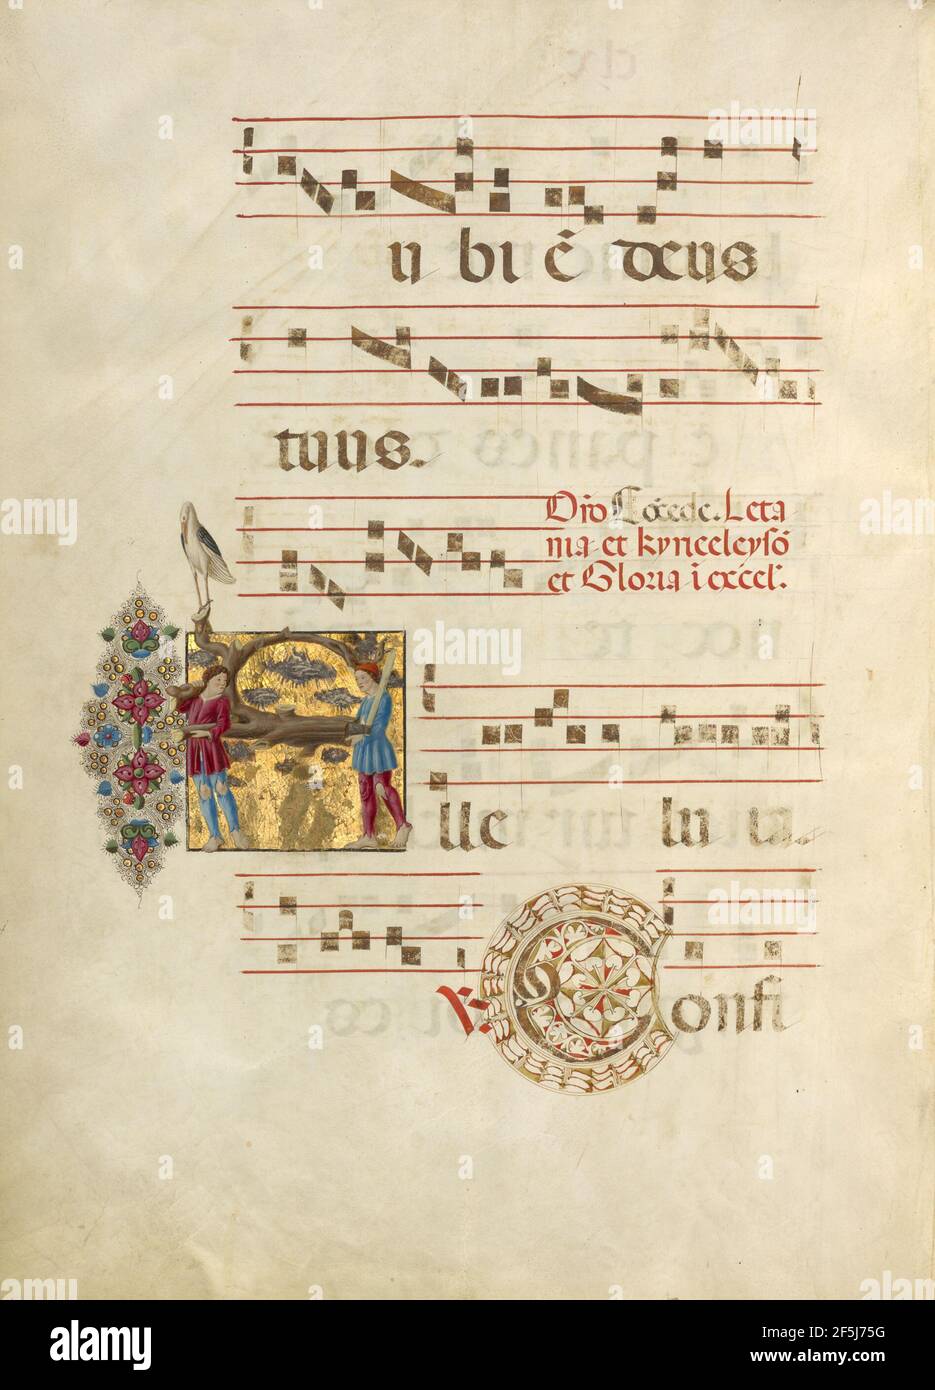 u bi ē deus
tuus.
Oro Concede. Leta
nia et kyrieeleysō
et Gloria i excel'.
A lle lu ia.
V Confi
a
alamy
Image ID: 2F5J75G
www.alamy.com